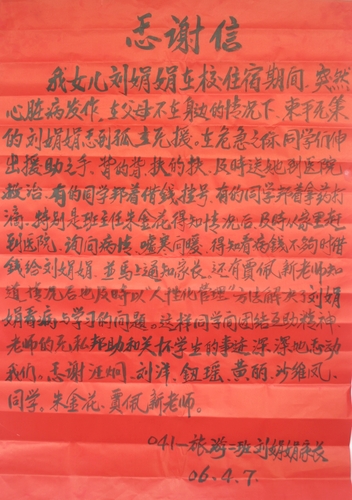 感谢信
我女儿刘娟娟在校住宿期间,突然
心脏病发作,在父母不在身边的情况下,束手无策
的刘娟娟感到孤立无援。在危急之际同学们伸
出援助之手,背的背扶的扶,及时送她到医院
救治。有的同学帮着借钱,挂号,有的同学帮着拿药打
滴,特别是班主任朱金花得知情况后,及时从家里赶
到医院,询问病情,嘘寒问暖,得知看病钱不够时借
钱给刘娟娟,並馬上通知家长,还有贾佩新老师知
道情况后也及时以"人性化管理"方法解决了刘娟
娟看病与学习的问题。这样同学间团结互助精神
老师的无私帮助和关怀学生的事迹,深深地感动
我们,感谢汪炯,刘洋,钮瑶,黄丽,沙维凤,
同学,朱金花,贾佩新老师。
041—旅游二班刘娟娟家长
06.4.7.